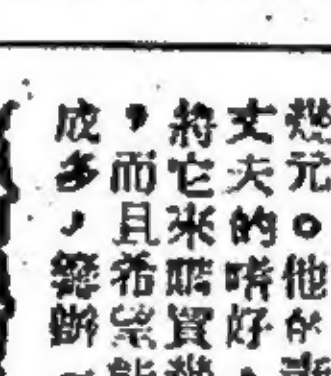 幾元。他的
丈夫的嗜好
將它米購買
，而且希望能
成多，籌辦